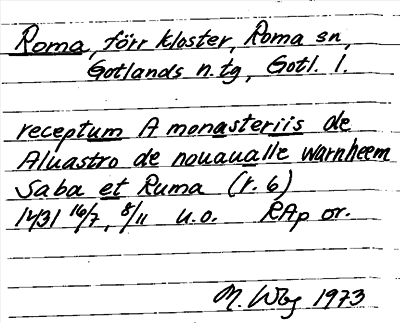 Roma, förr kloster, Roma sn,
Gotlands n. tg, Gotl. l.
receptum A monasteriis de
Aluastro de nouaualle warnheem
Saba et Ruma (r. 6)
1431 16/7, 8/11 u.o. RAp or.
M. Wbg 1973